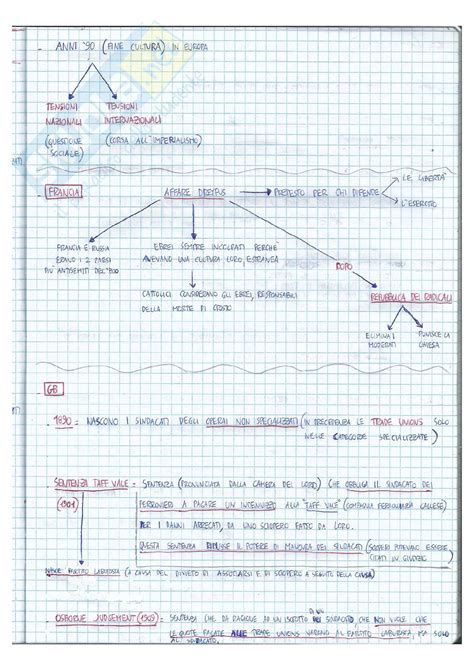 ANNI '90 (FINE CULTURA) IN EUROPA
TENSIONI NAZIONALI
(QUESTIONE SOCIALE)
TENSIONI INTERNAZIONALI
(CORSA ALL'IMPERIALISMO)
FRANCIA
AFFARE DREYFUS → PRETESTO PER CHI DIFENDE
LE LIBERTA'
L'ESERCITO
FRANCIA E RUSSIA
ERANO I 2 PAESI
PIU' ANTISEMITI DELL'800
EBREI SEMPRE INCOLPATI PERCHÉ
AVEVANO UNA CULTURA LORO, ESTRANEA
CATTOLICI CONSIDERANO GLI EBREI, RESPONSABILI
DELLA MORTE DI CRISTO
DOPO
REPUBBLICA DEI RADICALI
ELIMINA I
MODERATI
PUNISCE LA
CHIESA
GB
1890 = NASCONO I SINDACATI DEGLI OPERAI NON SPECIALIZZATI (IN PRECEDENZA LE TRADE UNIONS SOLO
NELLE CATEGORIE SPECIALIZZATE)
SENTENZA TAFF VALE = SENTENZA (PRONUNCIATA DALLA CAMERA DEI LORD) CHE OBBLIGA IL SINDACATO DEI
(1901)
FERROVIERI A PAGARE UN INDENNIZZO ALLA "TAFF VALE" (COMPAGNIA FERROVIARIA GALLESE)
PER I DANNI ARRECATI, DA UNO SCIOPERO FATTO DA LORO.
QUESTA SENTENZA RIDUSSE IL POTERE DI MANOVRA DEI SINDACATI (SCIOPERI POTEVANO ESSERE
CITATI IN GIUDIZIO)
NASCE PARTITO LABURISTA (A CAUSA DEL DIVIETO DI ASSOCIARSI E DI SCIOPERO A SEGUITO DELLA CAUSA)
OSBORNE JUDGEMENT (1909) = SENTENZA CHE DA RAGIONE AD UN ISCRITTO DI UN SINDACATO, CHE NON VUOLE CHE
LE QUOTE PAGATE ALLE TRADE UNIONS VADANO AL PARTITO LABURISTA, MA SOLO
AL SINDACATO.